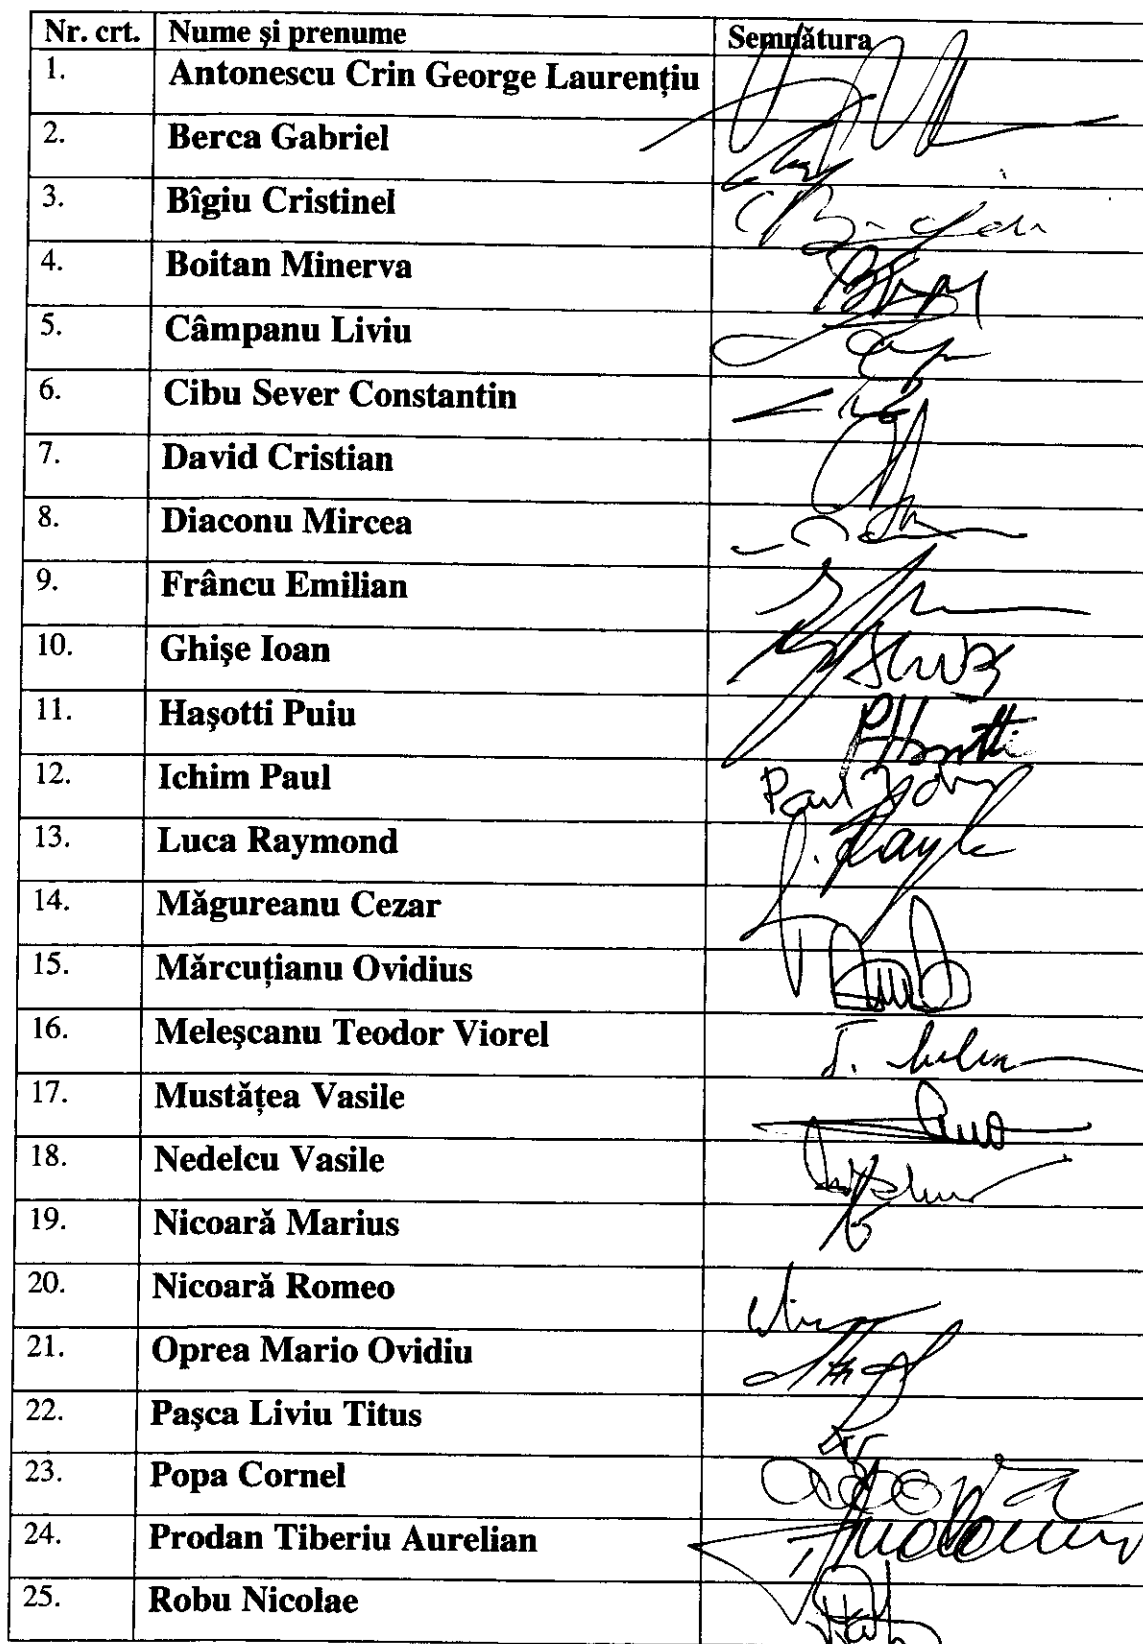 Nr. crt. Nume şi prenume Semnătura
1. Antonescu Crin George Laurenţiu
2. Berca Gabriel
3. Bîgiu Cristinel
4. Boitan Minerva
5. Câmpanu Liviu
6. Cibu Sever Constantin
7. David Cristian
8. Diaconu Mircea
9. Frâncu Emilian
10. Ghişe Ioan
11. Haşotti Puiu PHasotti
12. Ichim Paul Paul Ichim
13. Luca Raymond
14. Măgureanu Cezar
15. Mărcuţianu Ovidius
16. Meleşcanu Teodor Viorel
17. Mustăţea Vasile
18. Nedelcu Vasile
19. Nicoară Marius
20. Nicoară Romeo
21. Oprea Mario Ovidiu
22. Paşca Liviu Titus
23. Popa Cornel
24. Prodan Tiberiu Aurelian
25. Robu Nicolae